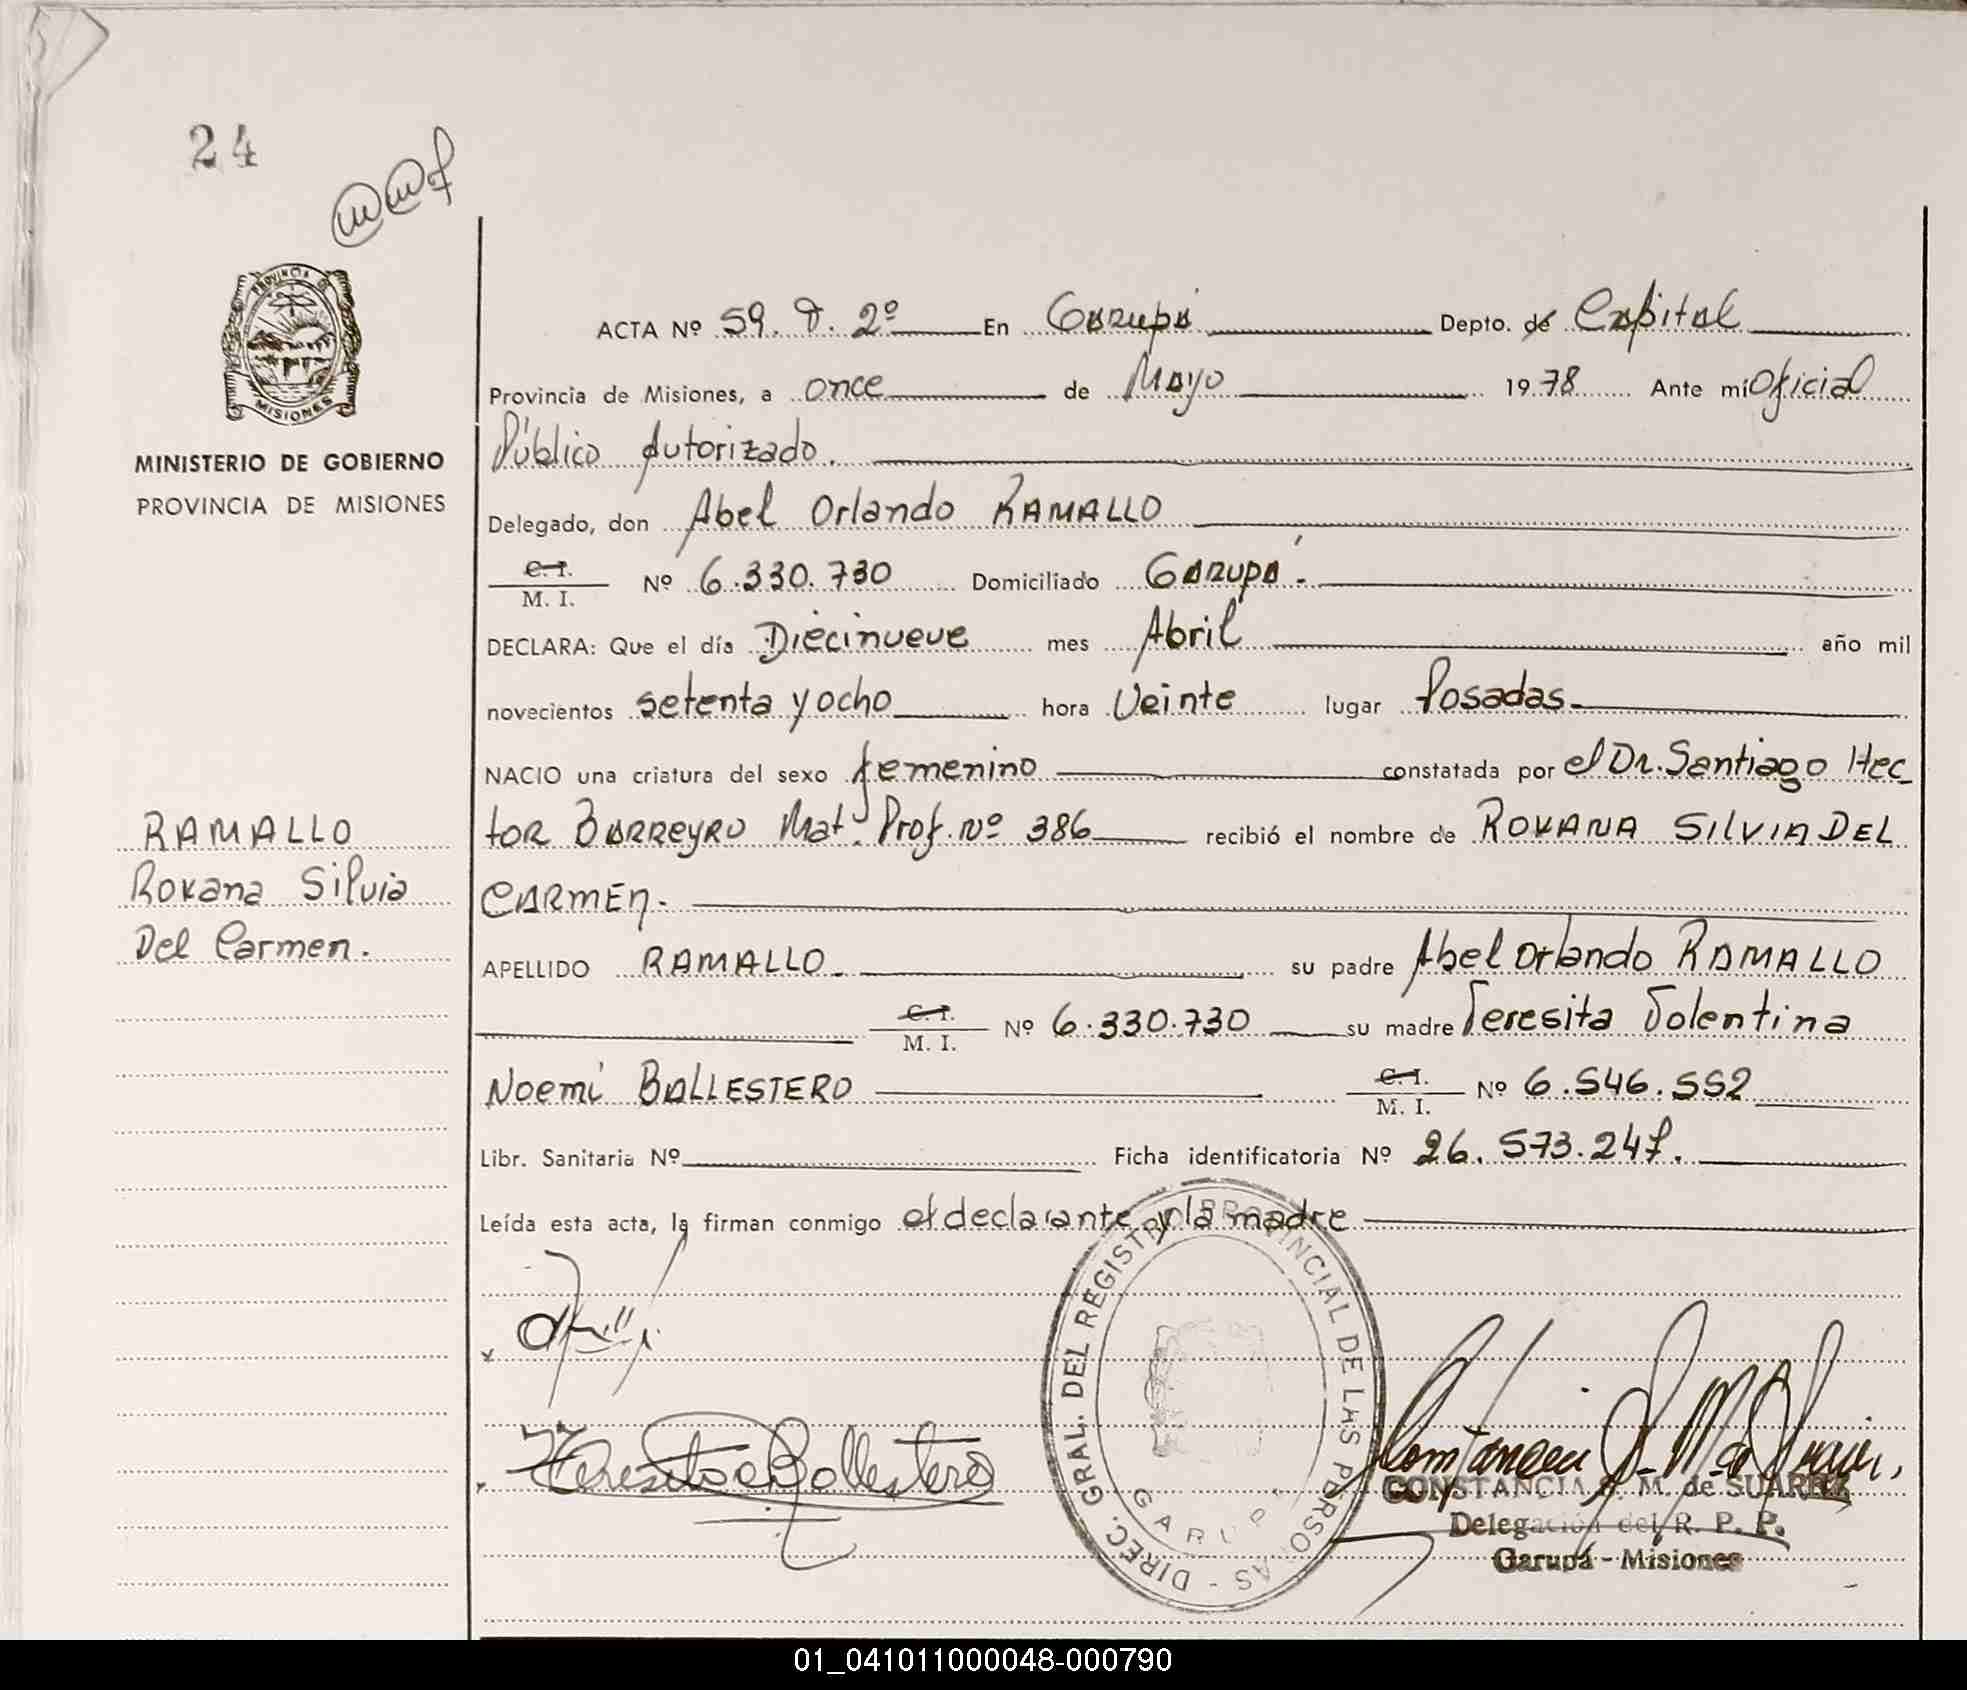 24
PROVINCIA D
MISIONES
MINISTERIO DE GOBIERNO
PROVINCIA DE MISIONES
ACTA Nº 59. T. 2º En Garupá Depto. de Capital
Provincia de Misiones, a once de Mayo 1978 Ante mí Oficial
Público Autorizado.
Delegado, don Abel Orlando RAMALLO
C. I.
M. I. Nº 6.330.730 Domiciliado Garupá.
DECLARA: Que el día Diecinueve mes Abril año mil
novecientos setenta y ocho hora Veinte lugar Posadas
NACIO una criatura del sexo femenino constatada por el Dr. Santiago Hec
tor Barreyro Mat. Prof. Nº 386 recibió el nombre de ROXANA SILVIA DEL
CARMEN.
APELLIDO RAMALLO. su padre Abel Orlando RAMALLO
C. I.
M. I. Nº 6.330.730 su madre Teresita Tolentina
Noemí BALLESTERO C. I.
M. I. Nº 6.546.552
Libr. Sanitaria Nº Ficha identificatoria Nº 26.573.247.
Leída esta acta, la firman conmigo el declarante y la madre
RAMALLO
Roxana Silvia
Del Carmen.
Teresita Ballestero
DIREC. GRAL. DEL REGISTRO PROVINCIAL DE LAS PERSONAS -
GARUPA
CONSTANCIA S. M. de SUAREZ
Delegación del R. P. P.
Garupá - Misiones
01_041011000048-000790